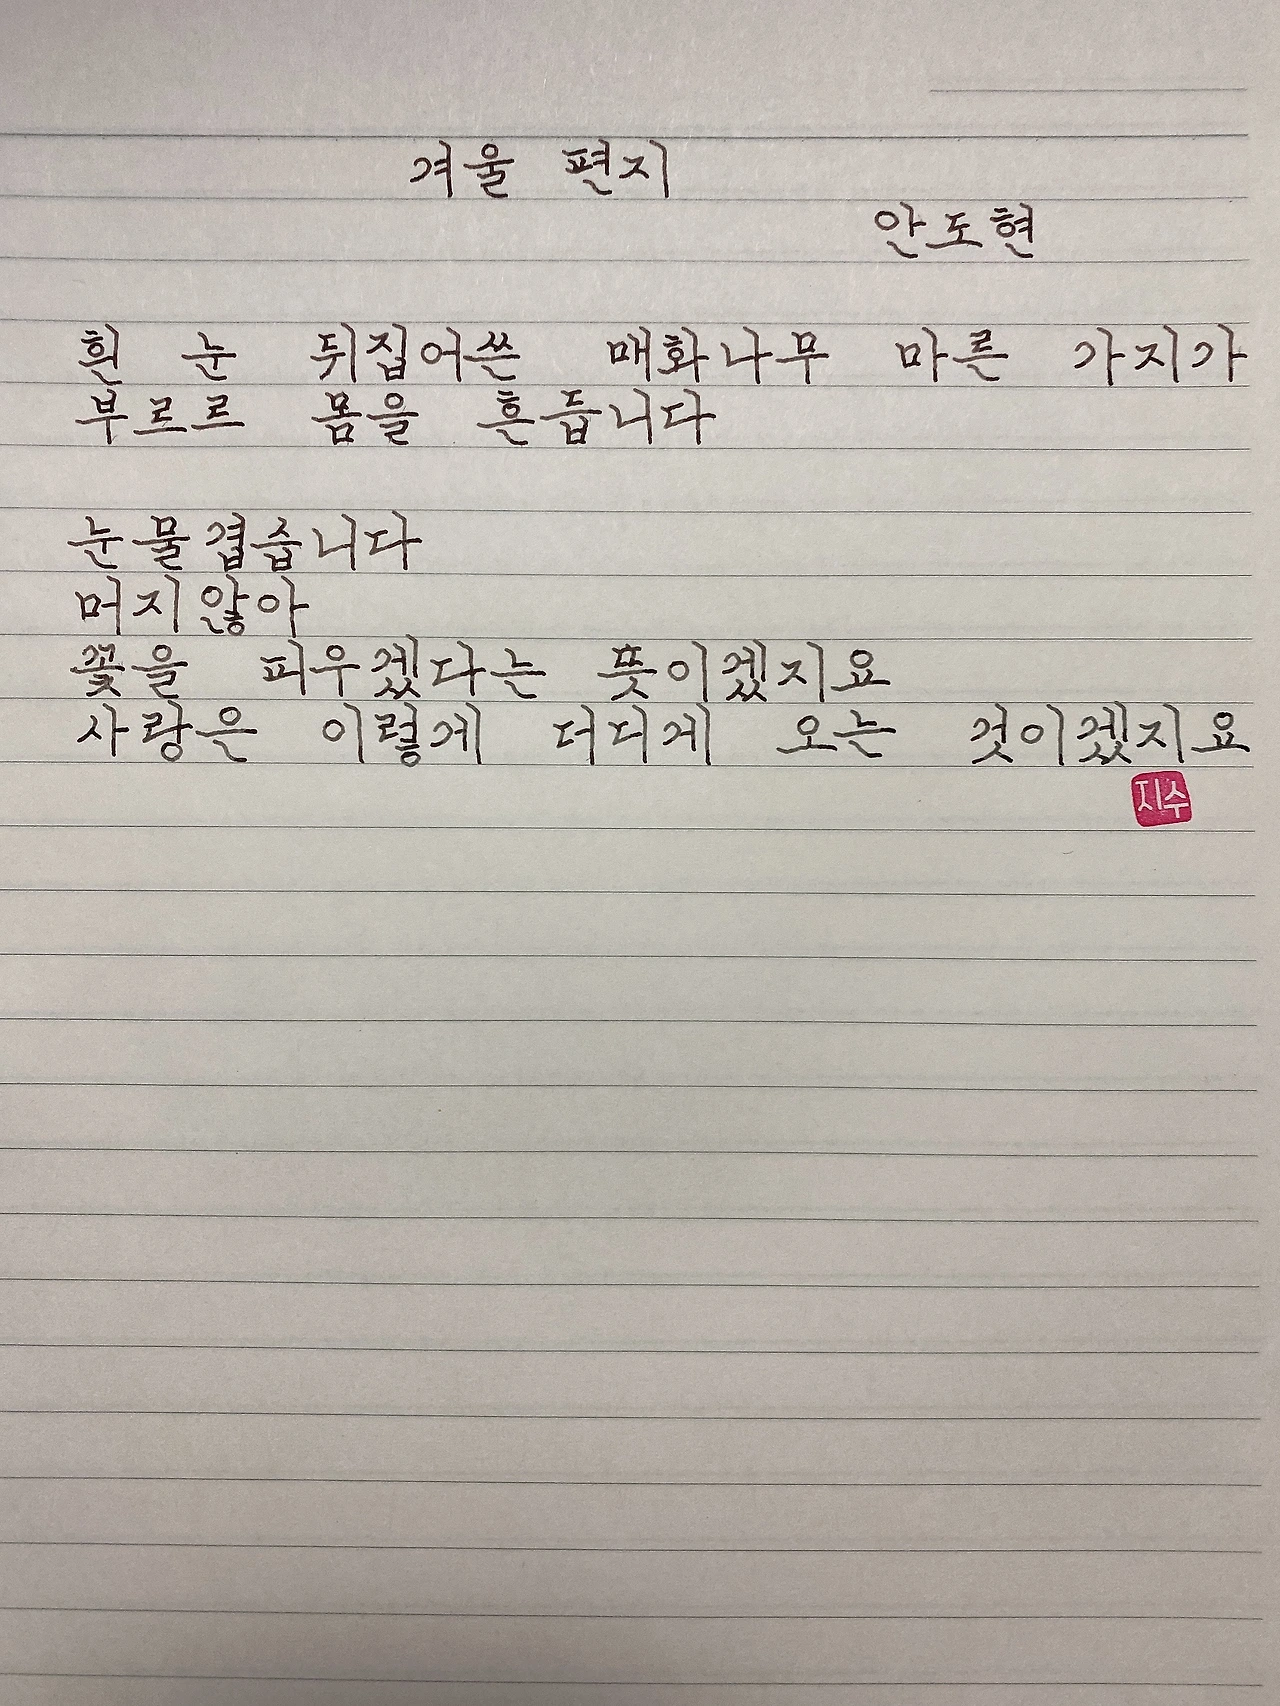 겨울 편지
안도현
흰 눈 뒤집어쓴 매화나무 마른 가지가
부르르 몸을 흔듭니다
눈물겹습니다
머지않아
꽃을 피우겠다는 뜻이겠지요
사랑은 이렇게 더디게 오는 것이겠지요
지수